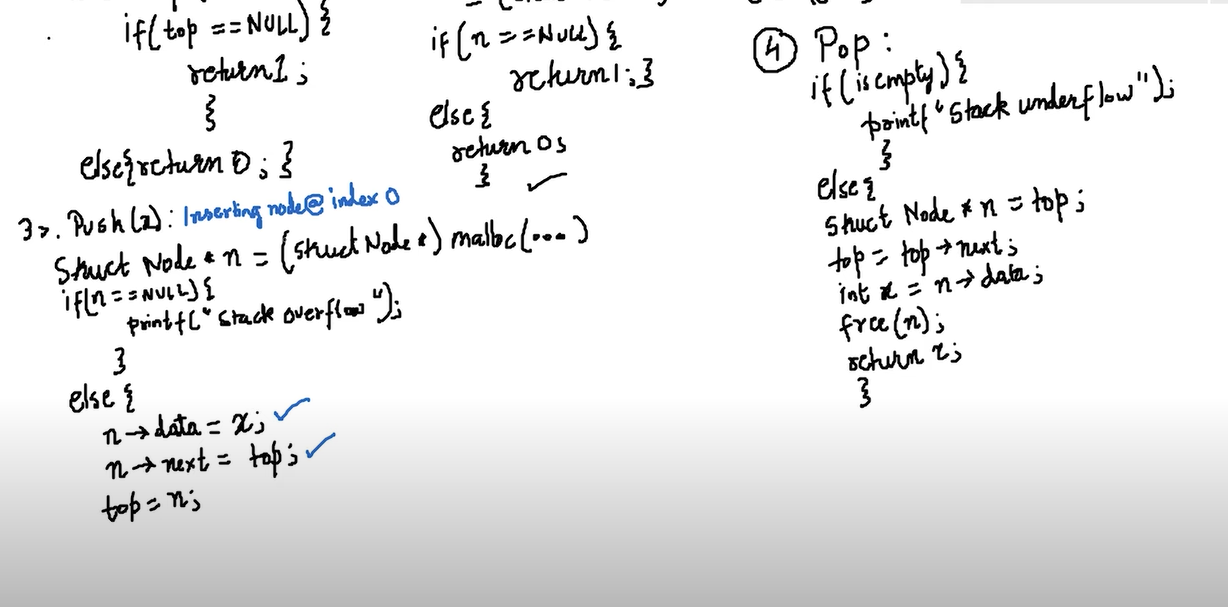 if(top==NULL){
return1;
}
else{return 0;}
if(n==NULL){
return1;}
else{
return 0;
}
3>. Push(x): Inserting node@ index 0
Struct Node * n = (struct Node *) malloc(...)
if(n==NULL){
printf("Stack overflow");
}
else {
n→data = x;
n→next = top;
top=n;
4 Pop:
if(isempty){
printf("Stack underflow");
}
else{
Struct Node * n = top;
top = top→next;
int x = n→data;
free(n);
return x;
}